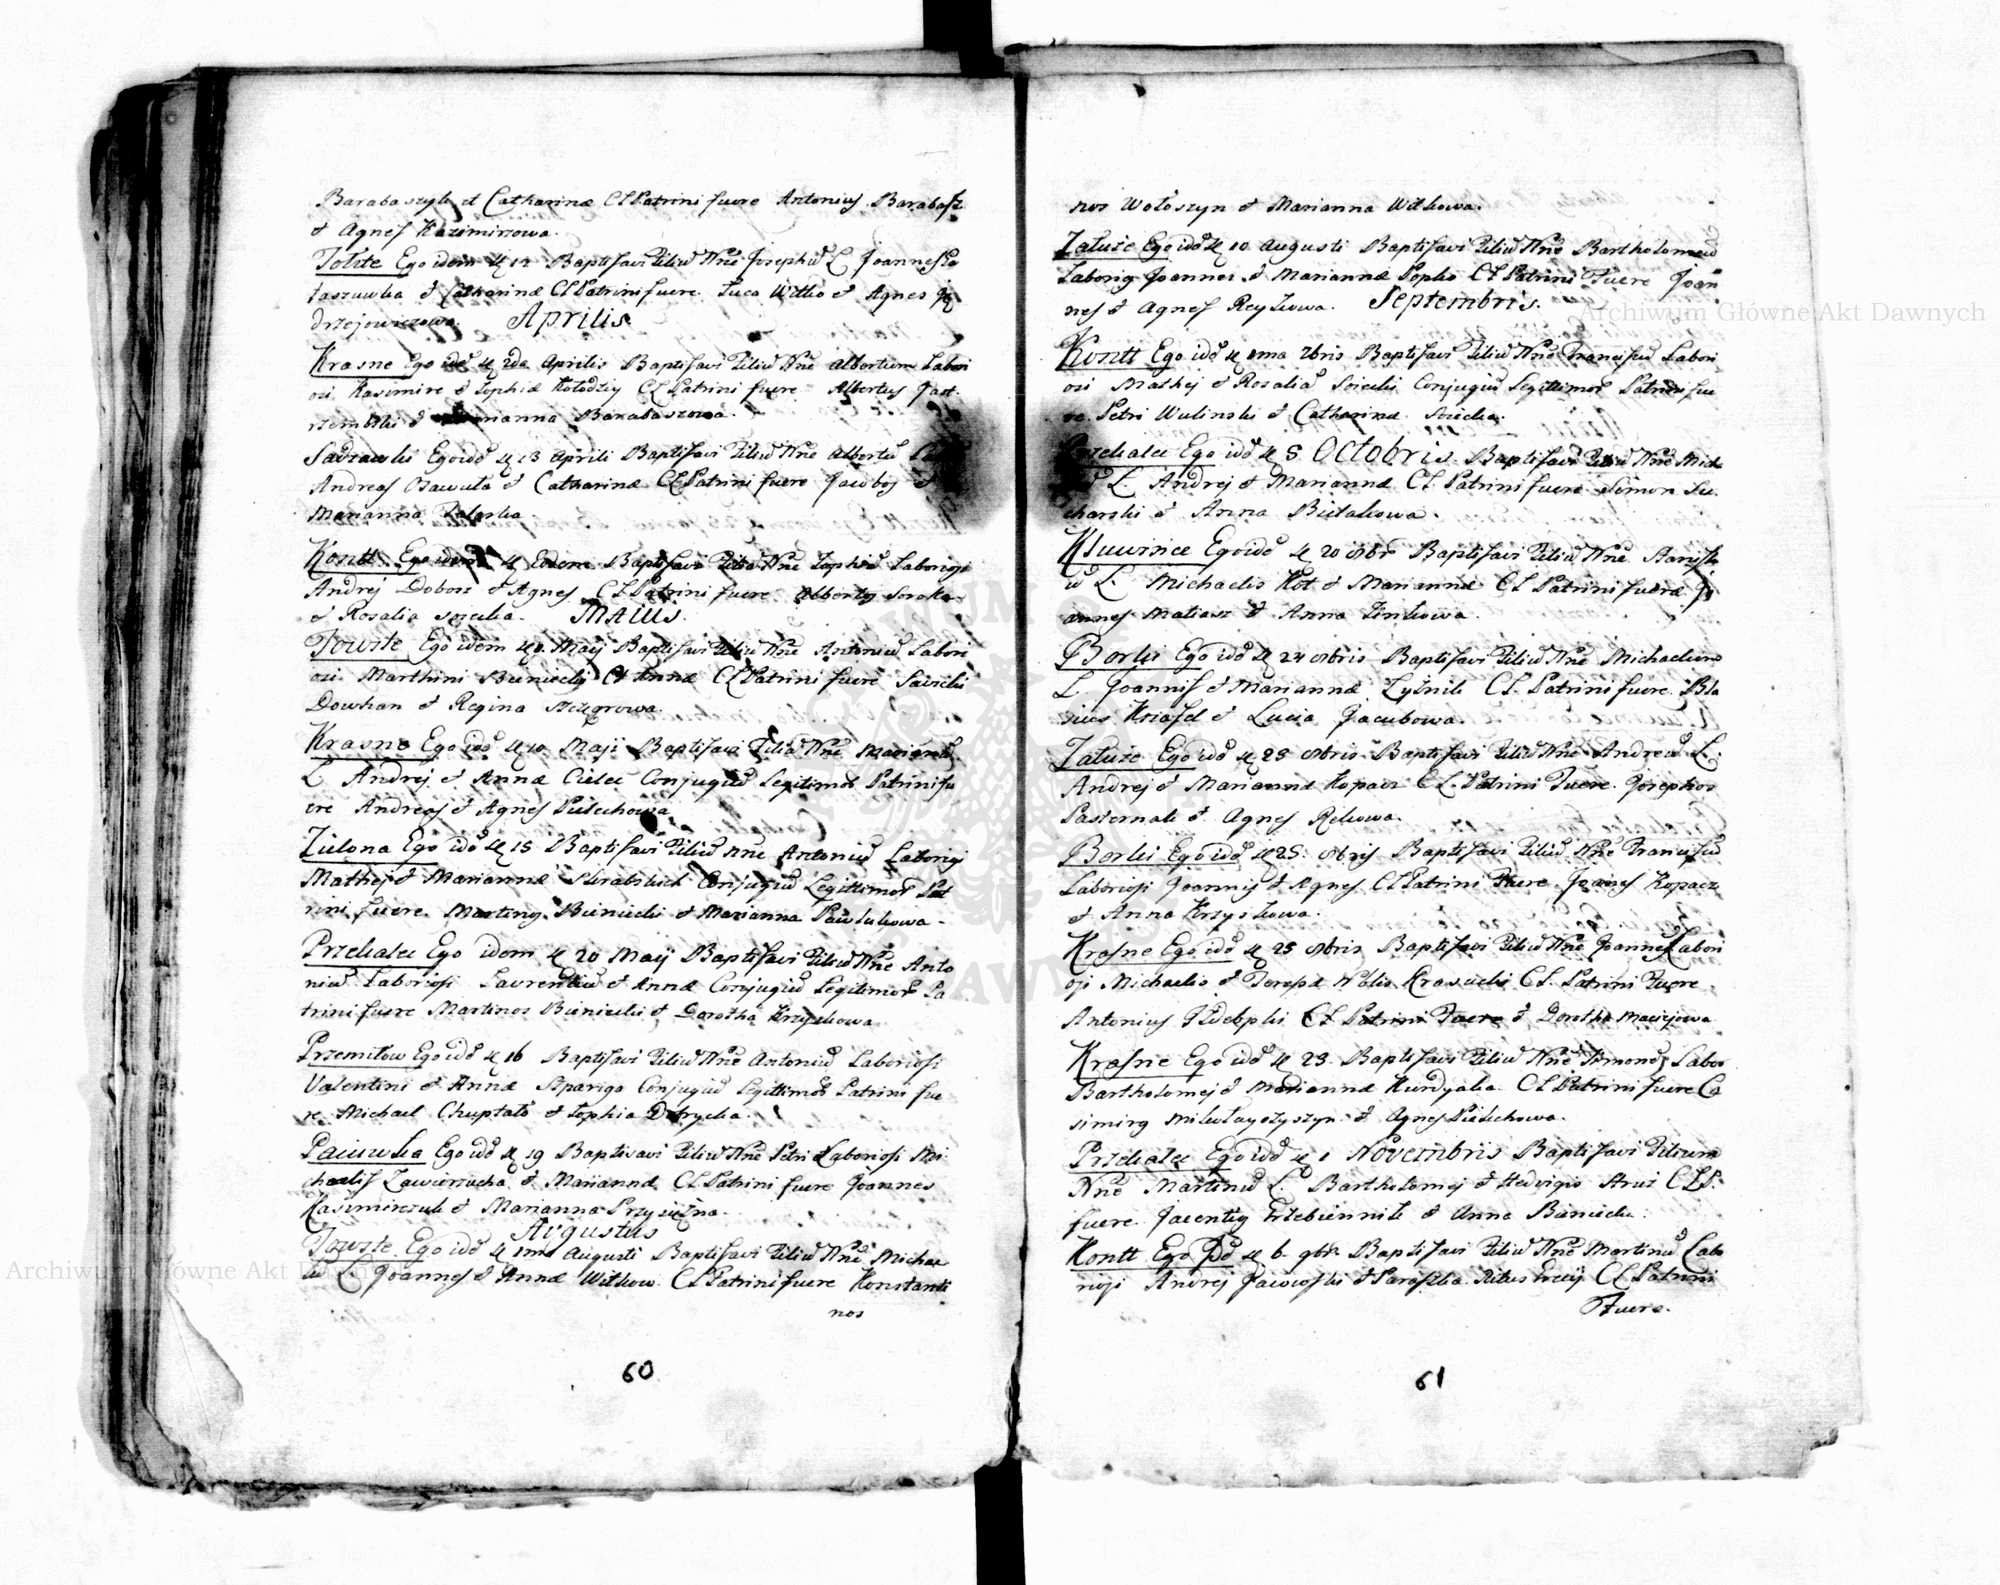 Barabaszyk et Catharinæ CL Patrini fuere Antonius Barabasz
et Agnes Kazimirzowa.
Tołste Ego idem d 12 Baptisavi Filiū Nñe Josephū L Joannes
et Catharinæ CL Patrini fuere Luca Witko et Agnes Ję
drzejowiczowa. Aprilis.
Krasne Ego idē d 2da Aprilis Baptisavi Filiū Nñe Albertum Labori
osi Kasimire et Sophiæ Kołodziy CL Patrini fuere Albertus Jast.
rzembski et Marianna Barabaszowa.
Sadzawki Ego idē d 13 Aprili Baptisavi Filiū Nñe Albertū
Andreas et Catharinæ CL Patrini fuere Jacobos et
Marianna
Kontt Ego idem d Eodem Baptisavi Filiā Nñe Sophiā Laboriosi
Andrej Dobosz et Agnes CL Patrini fuere Albertus Soroka
et Rosalia MAIUS.
Touste Ego idem d Maij Baptisavi Filiū Nñe Antoniū Labori
osi Marthini Biniecki et Annæ CL Patrini fuere
Dowhan et Regina
Krasne Ego idē d 10 Maji Baptisavi Filiā Nñe Mariannā
L Andrej et Annæ Cielec Conjugiū Legitimor Patrini fu
ere Andreas et Agnes Pielechowa
Zielona Ego idē d 15 Baptisavi Filiū Nñe Antoniū Laboriosi
Mathej et Mariannæ Conjugiū Legittimor Pat
rini fuere Martinus Biniecki et Marianna Pawlukowa -
Przekalec Ego idem d 20 Maij Baptisavi Filiū Nñe Anto
niū Laboriosi Laurentiū et Annæ Conjugiū Legitimor Pa
trini fuere Martinos Biniecki et Dorotha Krzyskowa
Przemiłow Ego idē d 16 Baptisavi Filiū Nñe Antoniū Laboriosi
Valentini et Annæ Szpariga Conjugiū Legittimor Patrini fue
re Michael et Sophia Dmtrycka.
Paiuwka Ego idē d 19 Baptisavi Filiū Nñe Petri Laboriosi Mi
chaelis Zawierucha et Mariannæ CL Patrini fuere Joannes
Kasimirczuk et Marianna Przysiężna.
Augustus
Touste Ego idē d 1ma Augusti Baptisavi Filiū Nñe Michae
lū L Joannes et Annæ Witkow CL Patrini fuere Konstanti
nos
60
nos Wołoszyn et Marianna Witkowa.
Załuże Ego idē d 10 Augusti Baptisavi Filiū Nñe Bartholomeū
Laboriq Joannes et Mariannæ Popko CL Patrini Fuere Joan
nes et Agnes Reykowa. Septembris.
Kontt Ego idē d 1ma 7bris Baptisavi Filiū Nñe Franciscū Labori
osi Mathej et Rosaliā Conjugiū Legittimor Patrini fue
re Petri Wulinski et Catharina
Przekalec Ego idē d 5 Octobris Baptisavi Filiū Nñe Mich
L Andrej et Mariannæ CL Patrini fuere Simon Su
charski et Anna Bielakowa.
Kluwince Ego idē d 20 8br Baptisavi Filiū Nñe Stanisła
ū L. Michaelis Kot et Mariannæ CL Patrini fuere Jo
annes Matiasz et Anna Zinkowa.
Borki Ego idē d 24 8bris Baptisavi Filiū Nñe Michaelum
L. Joannis et Mariannæ CL. Patrini fuere Bla
sius et Lucia Jacubowa.
Załuże Ego idē d 25 8bris Baptisavi Filiū Nñe Andreā L.
Andrej et Mariannæ Kopacz CL. Patrini Fuere Josephos
Pasternak et Agnes Rekowa.
Borki Ego idē d 25. 8bris Baptisavi Filiū Nñe Franciscū
Laboriosi Joannis et Agnes CL Patrini Fuere Joanes Kopacz
et Anna Krzyskowa.
Krasne Ego idē d 25 8bris Baptisavi Filiū Nñe Joannes Labori
osi Michaelis et Teresæ Nobilis Krasucki CL. Patrini Fuere.
Antonius CL Patrini Fuere et Dorotha Maciejowa
Krasne Ego idē d 23. Baptisavi Filiū Nñe Simonē Labor
Bartholomej et Mariannæ Kurdyaka CL Patrini fuere Ca
simirq Mikołayczyszyn et Agnes Pielechowa.
Przekalec Ego idē d 1 Novembris Baptisavi Filium
Nñe Martinū L. Bartholomej et Hedvigis CLP.
fuere Jacentiq et Anna Biniecka.
Kontt Ego idē d 6 9br. Baptisavi Filiū Nñe Martinū Labo
riosi Andrej et Paraszka Ritus Græcij CL Patrini
Fuere.
61
Archiwum Główne Akt Dawnych
Archiwum Główne Akt Dawnych